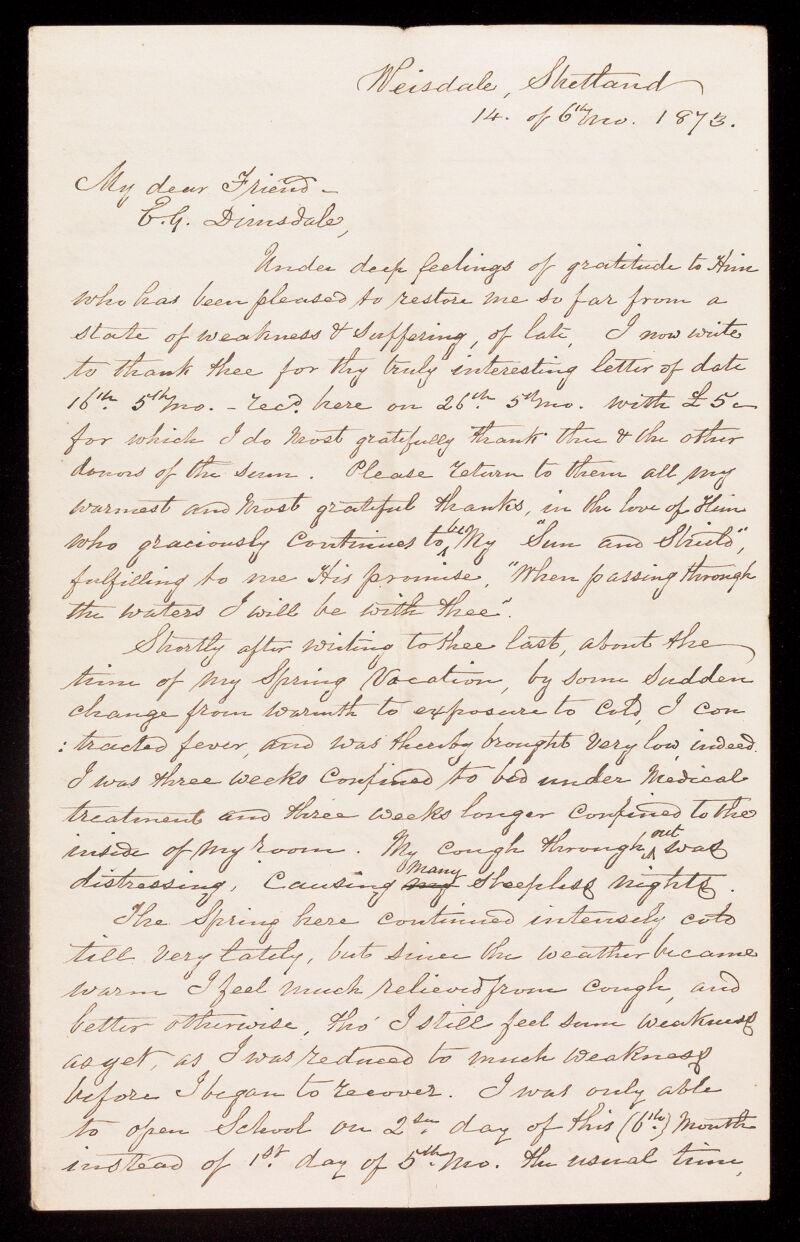 Weisdale, Shetland
14. of 6th mo. 1873.
My dear Friend -
E.G. Dimsdale,
Under deep feelings of gratitude to Him
who has been pleased to restore me so far from a
state of weakness & suffering, of late, I now write
to thank thee for thy truly interesting letter of date
16th. 5th mo. - recd. here on 26th. 5th mo. with £5-
for which I do most gratefully thank thee & the other
donors of the sum. Please return to them all my
warmest and most grateful thanks, in the love of Him
who graciously continues to be my "Sun and Shield",
fulfilling to me His promise, "When passing through
the waters I will be with thee".
Shortly after writing to thee last, about the
time of my Spring Vacation, by some sudden
change from warmth to exposure to cold, I con
: tracted fever, and was thereby brought very low, indeed.
I was three weeks confined to bed under Medical
treatment and three weeks longer confined to the
inside of my room. My cough throughout was
distressing, causing my many sleepless nights.
The Spring here continued intensely cold
till very lately, but since the weather became
warm I feel much relieved from cough, and
better otherwise, tho' I still feel sum weakness
as yet, as I was reduced to much weakness
before I began to recover. I was only able
to open School on 2nd day of this (6th.) Month
instead of 1st. day of 5th. mo. the usual time,